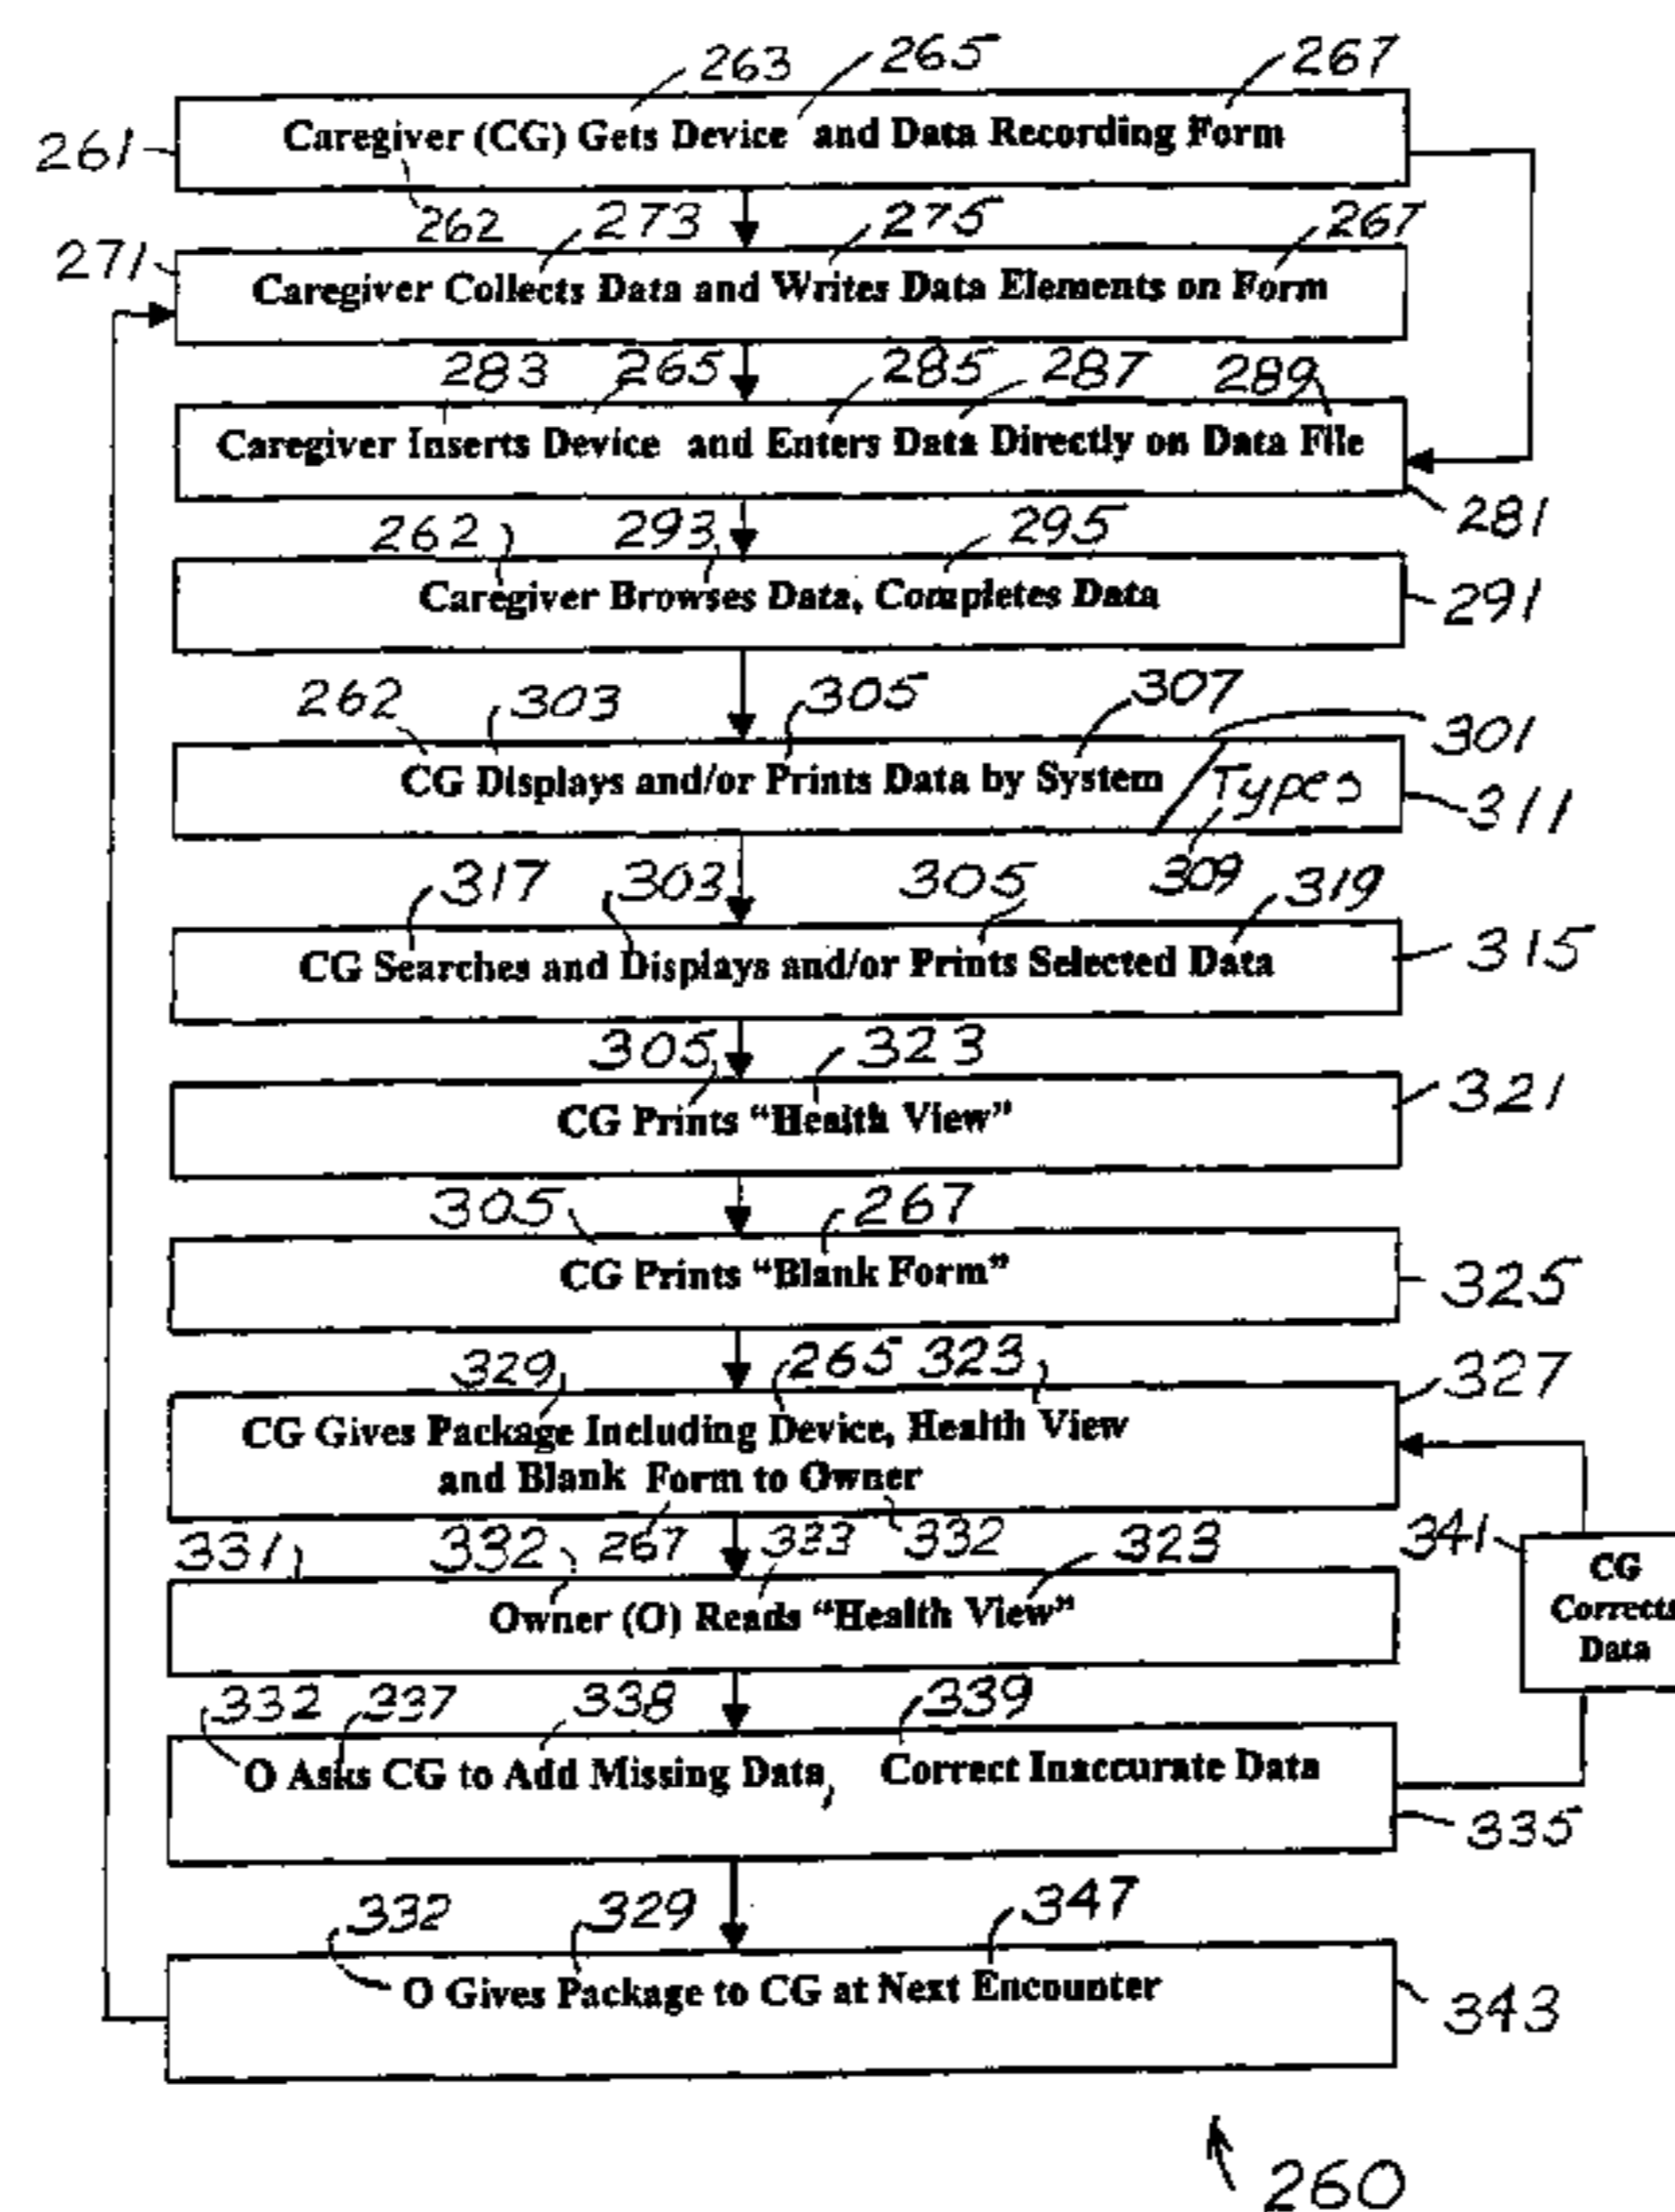 263 265 267
261 Caregiver (CG) Gets Device and Data Recording Form
262 273 275 267
271 Caregiver Collects Data and Writes Data Elements on Form
283 265 285 287 289
Caregiver Inserts Device and Enters Data Directly on Data File
281
262 293 295
Caregiver Browses Data, Completes Data 291
262 303 305 307 301
CG Displays and/or Prints Data by System Types 311
317 303 305 309 319
CG Searches and Displays and/or Prints Selected Data 315
305 323
CG Prints "Health View" 321
305 267
CG Prints "Blank Form" 325
329 265 323 327
CG Gives Package Including Device, Health View
and Blank Form to Owner
331 332 267 333 332 323 341
Owner (O) Reads "Health View"
CG
Corrects
Data
332 337 338 339
O Asks CG to Add Missing Data, Correct Inaccurate Data
335
332 329 347
O Gives Package to CG at Next Encounter 343
260